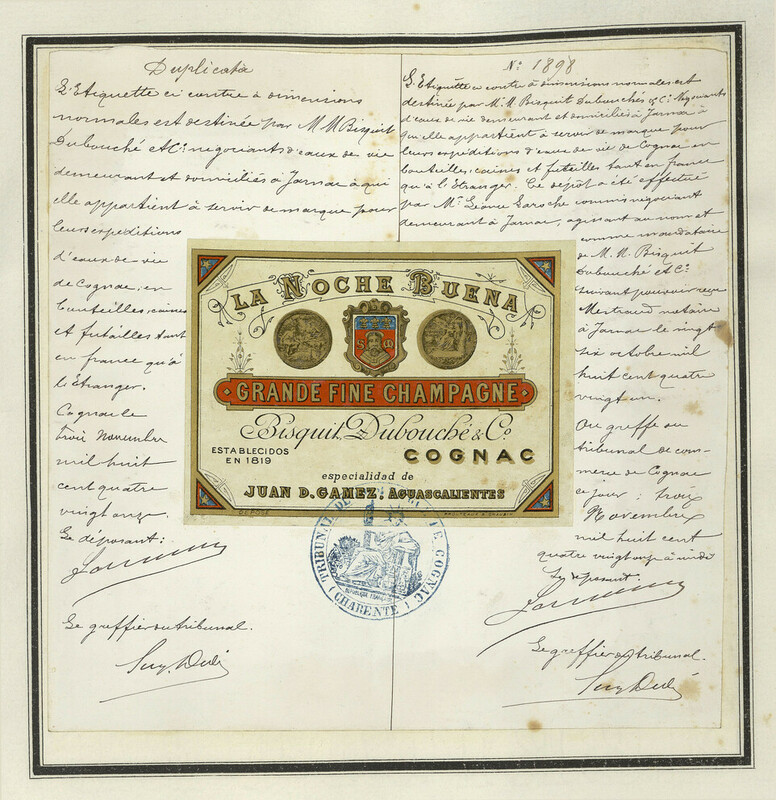 Duplicata
L'Etiquette ci contre à dimensions
normales est destinée par M.M Bisquit
Dubouché et Cie négociants d'eaux de vie
demeurant et domiciliés à Jarnac à qui
elle appartient à servir de marque pour
leurs expeditions
d'eaux de vie
de Cognac, en
bouteilles, caisses
et futailles tant
en france qu'à
l'étranger.
Cognac le
trois Novembre
mil huit
cent quatre
vingt onze
Le déposant:
Le greffier du tribunal.
No 1898
L'Etiquette ci contre à dimensions normales est
destinée par M.M. Bisquit Dubouchés & Cie Négociants
d'eaux de vie demeurant et domiciliés à Jarnac à
qui elle appartient à servir de marque pour
leurs expéditions d'eaux de vie de Cognac en
bouteilles, caisses et futailles tant en france
qu'à l'étranger. Ce dépôt a été effectué
par Mr Léonce Laroche commis négociant
demeurant à Jarnac, agissant au nom et
comme mandataire
de M.M. Bisquit
Dubouché et Cie
suivant pouvoir reçu
notaire
à Jarnac le vingt
six octobre mil
huit cent quatre
vingt un.
Au greffe du
tribunal de com-
merce de Cognac
ce jour: trois
Novembre
mil huit cent
quatre vingt onze à midi
Le déposant.
Le greffier du tribunal.
LA NOCHE BUENA
GRANDE FINE CHAMPAGNE
Bisquit Dubouché & Co
ESTABLECIDOS
EN 1819
COGNAC
especialidad de
JUAN D. GAMEZ. AGUASCALIENTES
DÉPOSÉ
TRIBUNAL DE COGNAC
(CHARENTE)